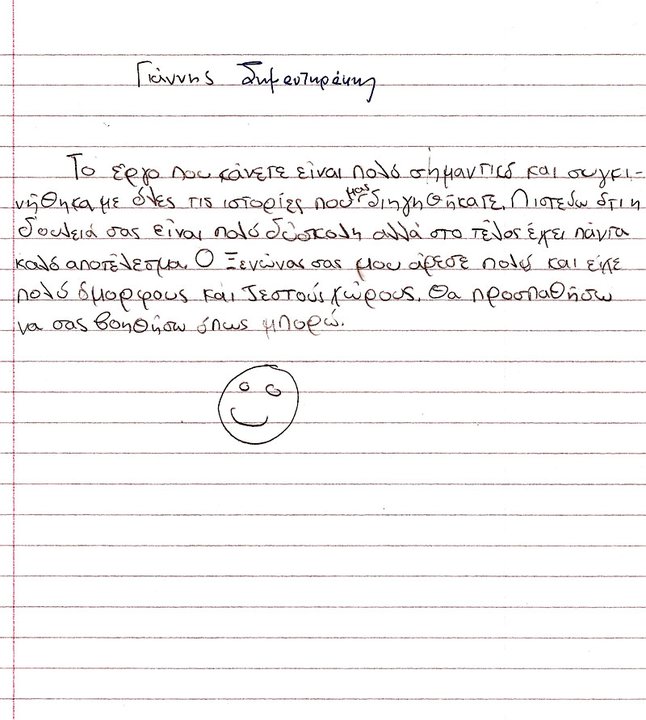 Γιάννης Δημεντηράκης
Το έργο που κάνετε είναι πολύ σημαντικό και συγκι-
νήθηκα με όλες τις ιστορίες που μας διηγηθήκατε. Πιστεύω ότι η
δουλειά σας είναι πολύ δύσκολη αλλά στο τέλος έχει πάντα
καλό αποτέλεσμα. Ο Ξενώνας σας μου άρεσε πολύ και είχε
πολύ όμορφους και ζεστούς χώρους. Θα προσπαθήσω
να σας βοηθήσω όπως μπορώ.